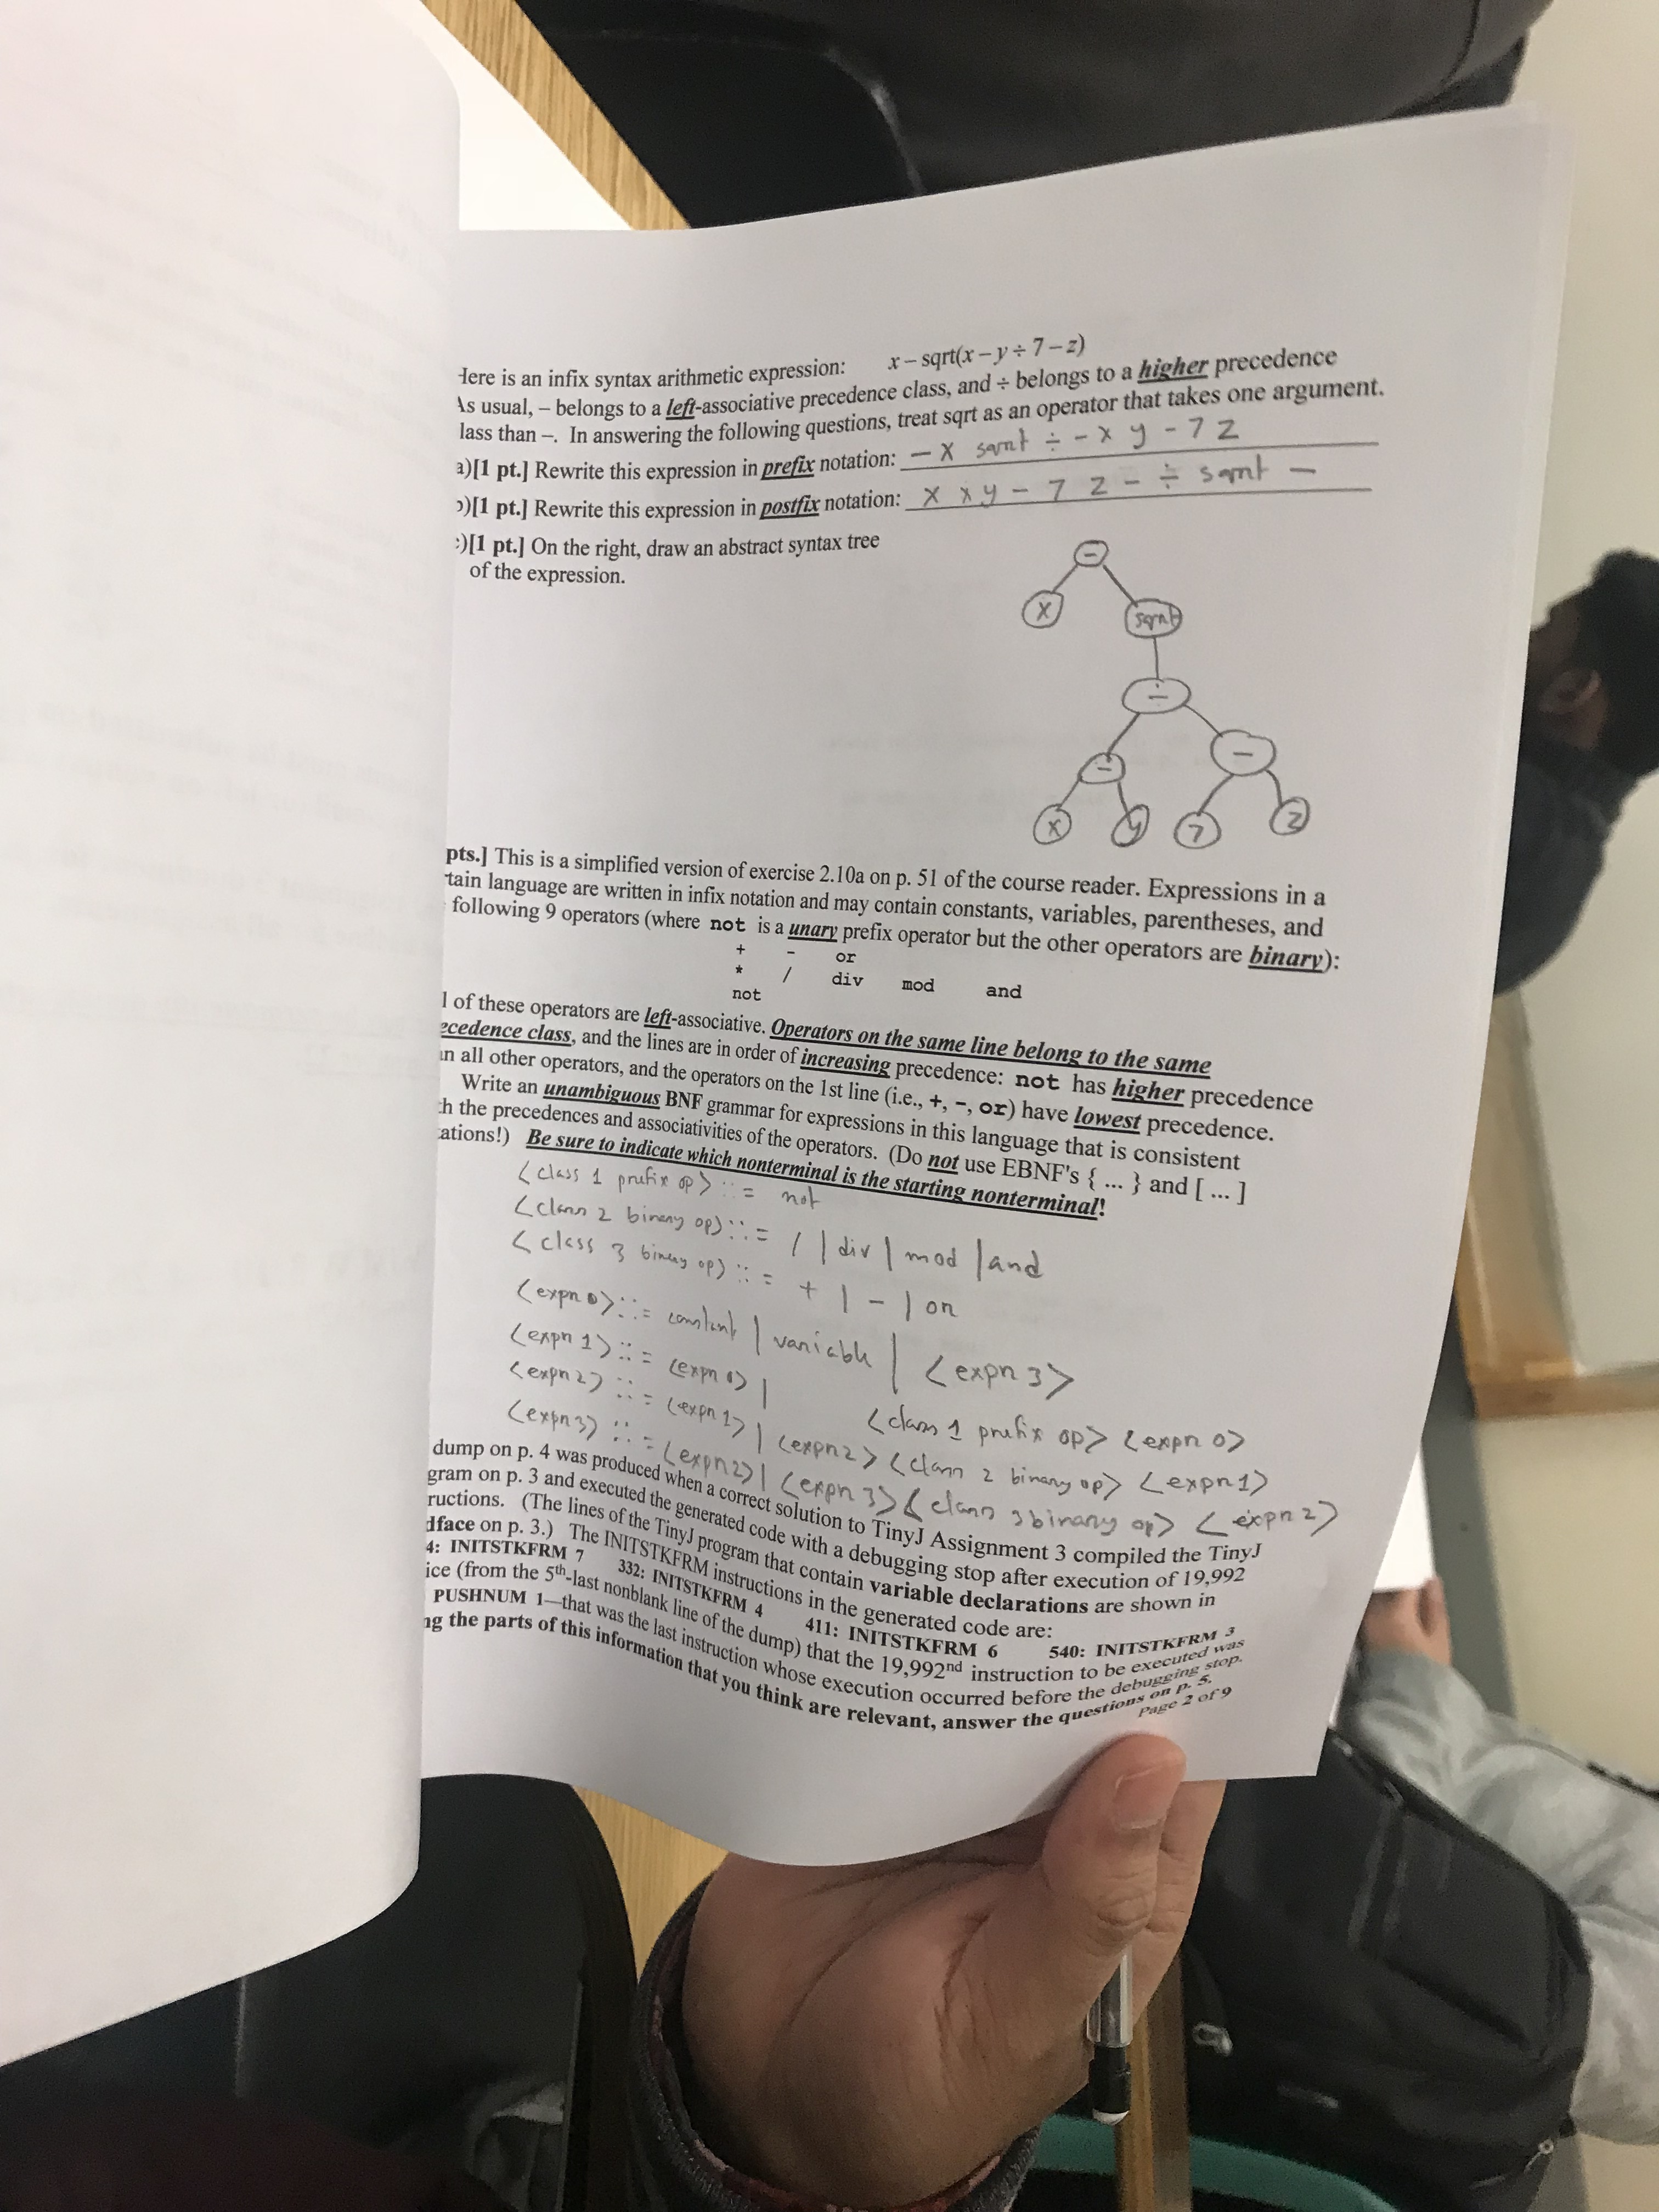 Here is an infix syntax arithmetic expression: x – sqrt(x – y ÷ 7 – z)
As usual, – belongs to a left-associative precedence class, and ÷ belongs to a higher precedence
lass than –. In answering the following questions, treat sqrt as an operator that takes one argument.
a)[1 pt.] Rewrite this expression in prefix notation: – x sqrt ÷ – x y – 7 z
)[1 pt.] Rewrite this expression in postfix notation: x x y – 7 z – ÷ sqrt –
)[1 pt.] On the right, draw an abstract syntax tree
of the expression.
–
x sqrt
÷
– –
x y 7 z
pts.] This is a simplified version of exercise 2.10a on p. 51 of the course reader. Expressions in a
tain language are written in infix notation and may contain constants, variables, parentheses, and
following 9 operators (where not is a unary prefix operator but the other operators are binary):
+ - or
* / div mod and
not
l of these operators are left-associative. Operators on the same line belong to the same
ecedence class, and the lines are in order of increasing precedence: not has higher precedence
n all other operators, and the operators on the 1st line (i.e., +, -, or) have lowest precedence.
Write an unambiguous BNF grammar for expressions in this language that is consistent
h the precedences and associativities of the operators. (Do not use EBNF's { ... } and [ ... ]
ations!) Be sure to indicate which nonterminal is the starting nonterminal!
<class 1 prefix op> ::= not
<class 2 binary op> ::= / | div | mod | and
<class 3 binary op> ::= + | - | or
<expr 0> ::= constant | variable | <expr 3>
<expr 1> ::= <expr 0> | <class 1 prefix op> <expr 0>
<expr 2> ::= <expr 1> | <expr 2> <class 2 binary op> <expr 1>
<expr 3> ::= <expr 2> | <expr 3> <class 3 binary op> <expr 2>
dump on p. 4 was produced when a correct solution to TinyJ Assignment 3 compiled the TinyJ
gram on p. 3 and executed the generated code with a debugging stop after execution of 19,992
ructions. (The lines of the TinyJ program that contain variable declarations are shown in
dface on p. 3.) The INITSTKFRM instructions in the generated code are:
4: INITSTKFRM 7 332: INITSTKFRM 4 411: INITSTKFRM 6 540: INITSTKFRM 3
ice (from the 5th-last nonblank line of the dump) that the 19,992nd instruction to be executed was
PUSHNUM 1—that was the last instruction whose execution occurred before the debugging stop.
ng the parts of this information that you think are relevant, answer the questions on p. 5.
Page 2 of 9